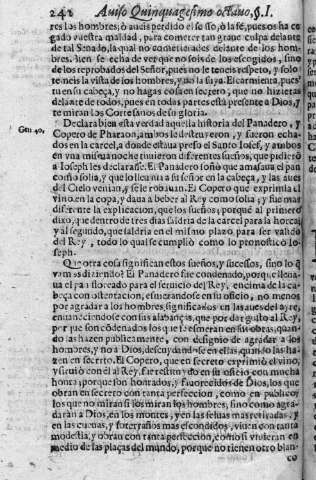 242 Auiso Quinquagesimo octauo, §. I.
res los hombres, ò aueis perdido el seso, ò la fè, pues os ha ce
gado vuestra maldad, para cometer tan graue culpa delante
de tal Senado, la qual no cometierades delante de los hom-
bres. Bien se echa de ver que no sois de los escogidos, sino
de los reprobados del Señor, pues no le teneis respeto, y solo
temeis la vista de los hombres, y no la suya. Escarmienta, pues
en su cabeça, y no hagas cosa en secreto, que no hizieras
delante de todos, pues en todas partes està presente a Dios, y
te miran los Cortesanos de su gloria.
Declara bien esta verdad aquella historia del Panadero, y
Gen. 40. Copero de Pharaon, ambos le destruyeron, y fueron echa-
dos en la carcel, a donde estaua preso el Santo Iosef, y ambos
en vna misma noche tuuieron diferentes sueños, que pidierõ
a Ioseph les declarasse. El Panadero soñò que amasaua el pan
como solia, y que lo lleuaua a su señor en la cabeça, y las aues
del Cielo venian, y se le robauan. El Copero que exprimia el
vino en la copa, y daua a beber al Rey como solia; y fue mas
diferente la explicacion, que los sueños: porque al primero
dixo, que dentro de tres dias saldria de la carcel para la horca,
y al segundo, que saldria en el mismo plazo para ser valido
del Rey, todo lo qual se cumpliò como lo pronosticò Io-
seph.
Que otra cosa significan estos sueños, y sucessos, sino lo q̃
vamos diziendo? El Panadero fue condenado, porque lleua-
ua el pan floreado para el seruicio del Rey, encima de la ca-
beça con ostentacion, esmerandose en su oficio, no menos
por agradar a los hombres, significados en las aues del ayre,
enuaneciendose con sus alabanças, que por dar gusto al Rey,
por que son cõdenados los que se esmeran en sus obras, quan-
do las hazen publicamente, con designio de agradar a los
hombres, y no a Dios, descuydando-se en ellas, quando las ha-
zen en secreto. El Copero, que en secreto exprimiò el vino,
y siruiò con èl al Rey, fue restituydo en su oficio con mucha
honra; porque son honrados, y fauorecidos de Dios, los que
obran en secreto con tanta perfeccion, como en publico;
los que no miran si los miran los hombres, sino como agra-
daràn a Dios, en los montes, y en las seluas mas retiradas, y
en las cueuas, y soterraños mas escondidos, viuen con tanta
modestia, y obran con tanta perfeccion, como si viuieran en
medio de las plaças del mundo, porque no tienen otro blan-
co